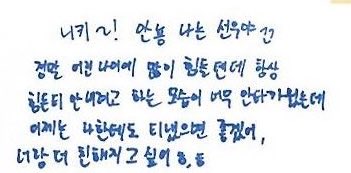 니키~! 안뇽 나는 선우야ㅋㅋ
정말 어린 나이에 많이 힘들텐데 항상
힘든티 안내려고 하는 모습이 너무 안타까웠는데
이제는 나한테도 티냈으면 좋겠어,
너랑 더 친해지고 싶어